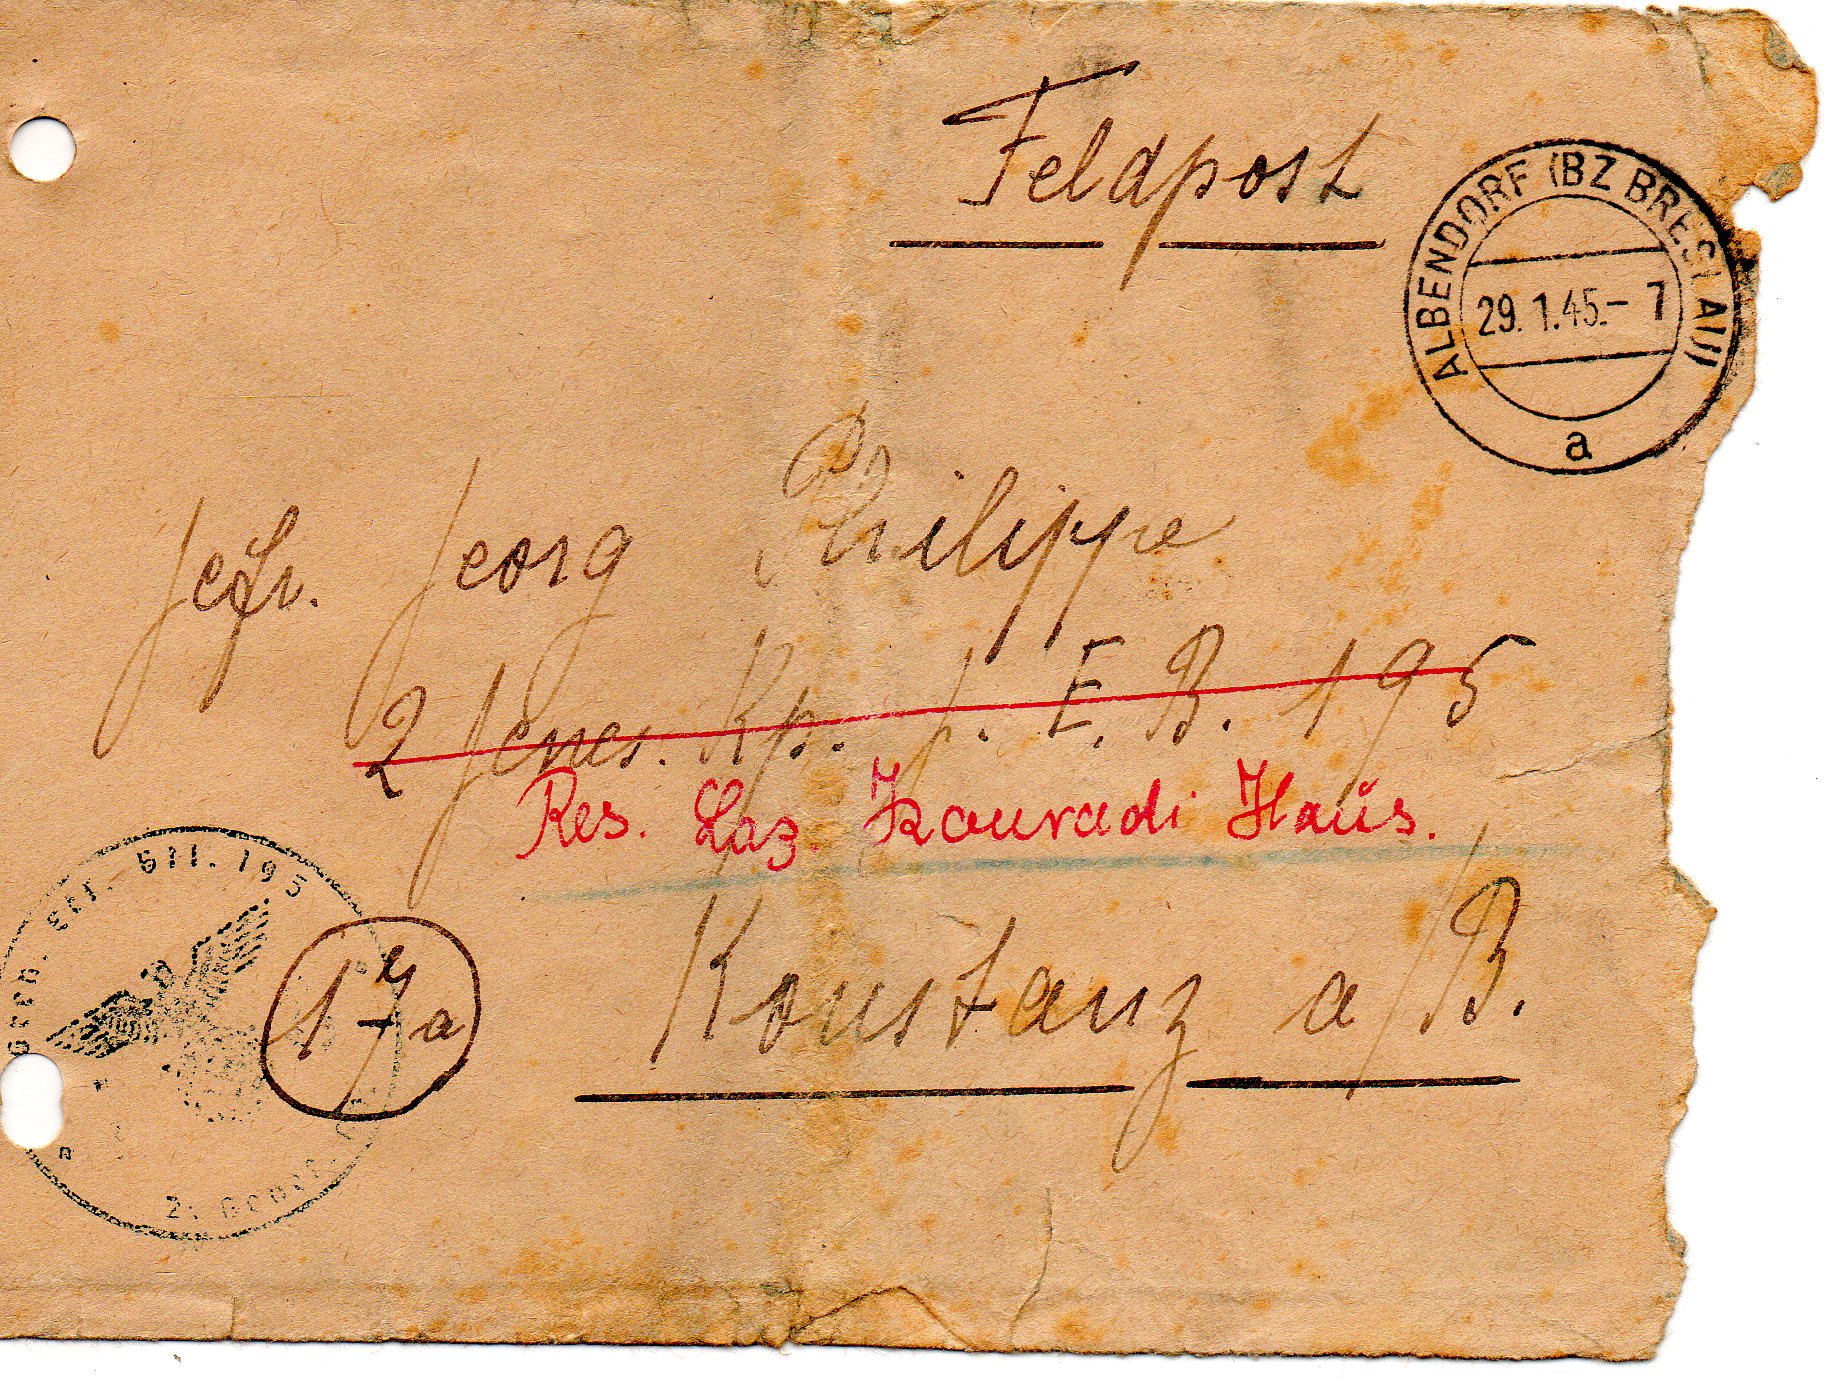 Feldpost
ALBENDORF (BZ BRESLAU)
29.1.45.- 7
a
Gefr. Georg Philippe
2 Genes. Kp. G. E. B. 195
Res. Laz. Konradi Haus.
Gren. Ers. Btl. 195
17a
Konstanz a/B.
2. Genes.